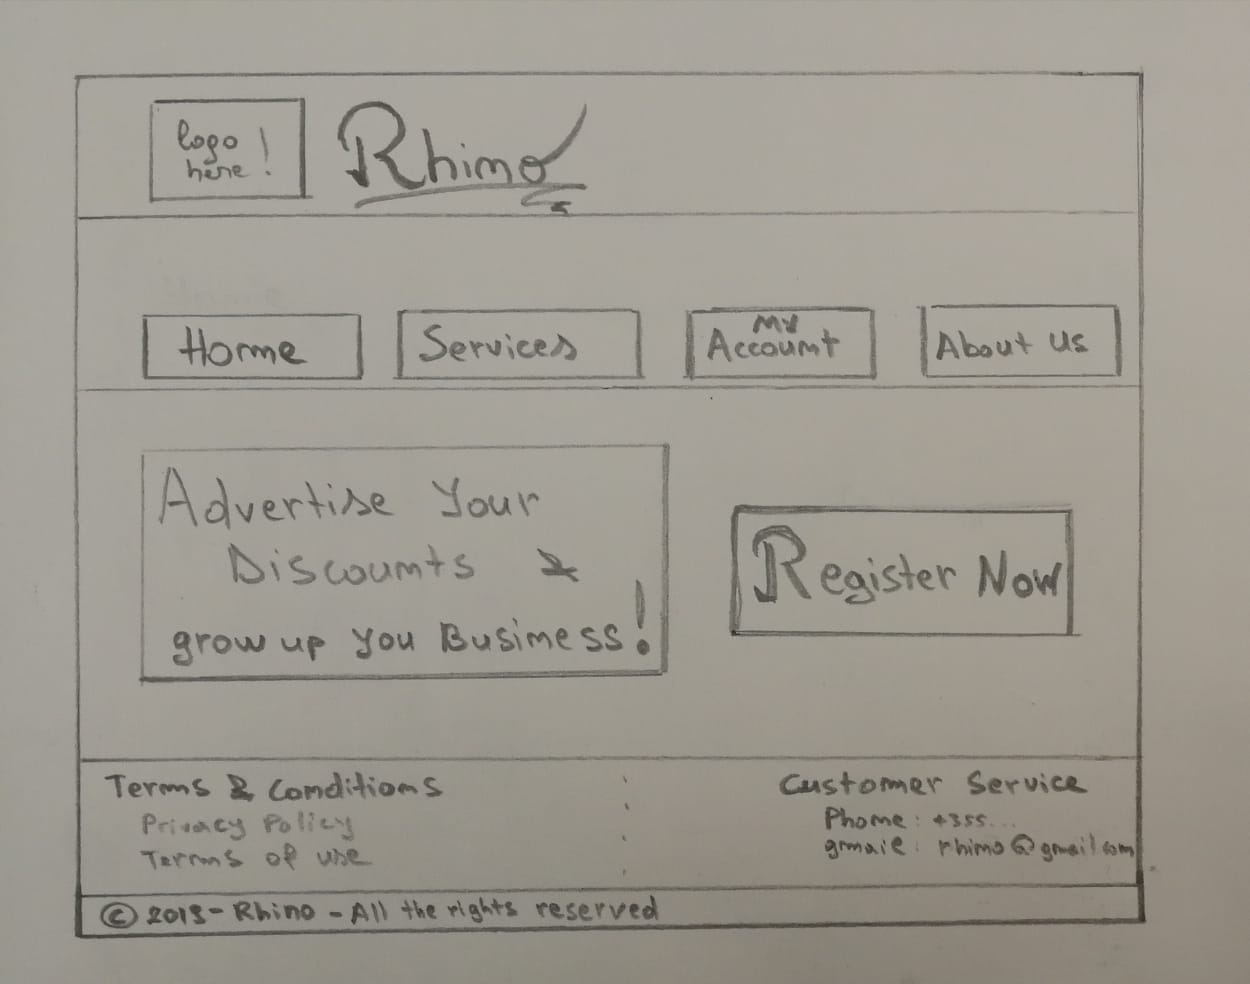 logo
here!
Rhino
Home
Services
My
Account
About us
Advertise Your
Discounts &
grow up you Business!
Register Now
Terms & Conditions
Privacy Policy
Terms of use
Customer Service
Phone: +355...
gmail: rhino@gmail.com
© 2019 - Rhino - All the rights reserved